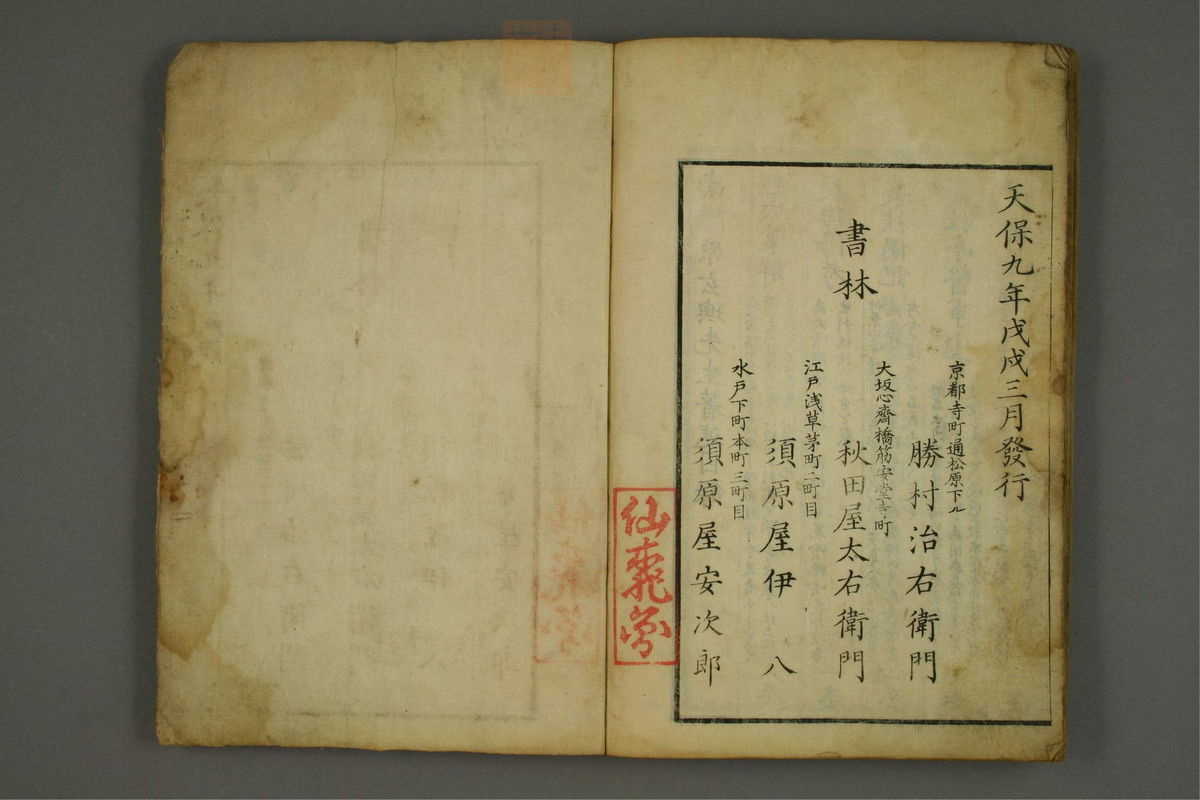 天保九年戊戌三月發行
書林
京都寺町通松原下ル
勝村治右衛門
大坂心齋橋筋安堂寺町
秋田屋太右衛門
江戸浅草茅町二町目
須原屋伊八
水戸下町本町三町目
須原屋安次郎